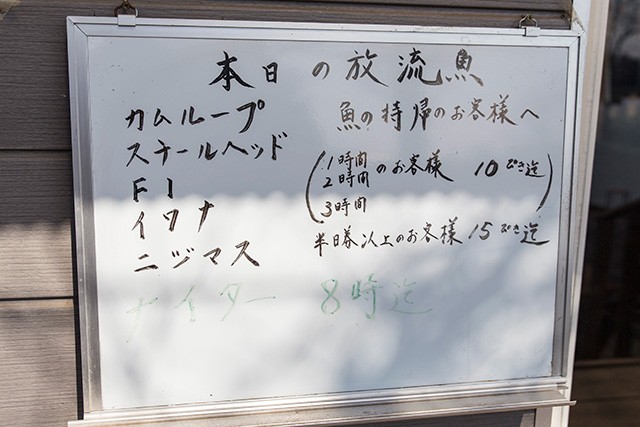 本日の放流魚
カムループ
スチールヘッド
F1
イワナ
ニジマス
魚の持帰のお客様へ
(1時間
2時間のお客様 10ぴき迄)
3時間
半日券以上のお客様 15ぴき迄
ナイター 8時迄